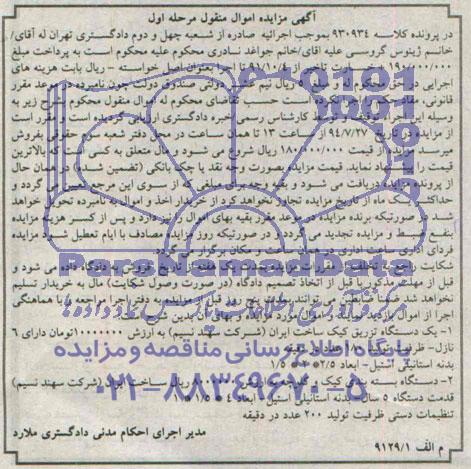 آگهی مزایده اموال منقول مرحله اول
در پرونده کلاسه ۹۳۰۹۳۴ بموجب اجرائیه صادره از شعبه چهل و دوم دادگستری تهران له آقای/
خانم ژینوس گروسی علیه آقای/خانم جواد نادری محکوم علیه محکوم است به پرداخت مبلغ
۱۹۰/۰۰۰/۰۰۰ خسارت تاخیر از ۹۱/۱۰/۴ تا اجرا بعنوان اصل خواسته - ریال بابت هزینه های
اجرایی در حق محکوم له و مبلغ ریال نیم عشر دولتی صندوق دولت چون نامبرده در موعد مقرر
قانونی، مفاد حکم را اجرا نکرده است حسب تقاضای محکوم له اموال منقول محکوم بشرح زیر به
وسیله این اجرا توقیف و توسط کارشناس رسمی خبره دادگستری ارزیابی گردیده است و مقرر است
از مزایده در تاریخ ۹۴/۷/۲۷ از ساعت ۱۳ تا همان ساعت در محل دفتر شعبه سوم حقوقی بفروش
میرسد مزایده از قیمت ۱۸۰۰۰۰/۰۰۰ ریال شروع می شود و مال متعلق به کسی است که بالاترین
قیمت را پیشنهاد نماید. قیمت مزایده بصورت وجه نقد یا چک بانکی (تضمین شده) در همان حال
از پرونده مزایده دریافت می شود و بقیه وجه برای مبلغی که از سوی این مرجع تعیین می گردد و
حداکثر یک ماه از تاریخ مزایده تجاوز نخواهد کرد از خریدار اخذ و اموال به نامبرده تحویل خواهد
شد و در صورتیکه برنده مزایده در موعد مقرر بقیه بهای اموال را نپردازد و پس از کسر هزینه مزایده
بنفع ضبط و مزایده تجدید می گردد. در صورتیکه روز مزایده مصادف با ایام تعطیل شد مزایده
فردای آن اداری ساعت اداری در همان ساعت و مکان برگزار می گردد.
شکایت راجع به تخلف از مقررات مزایده بمدت یک هفته از تاریخ فروش به دادگاه داده می شود و
قبل از مهلت مذکور یا قبل از اتخاذ تصمیم دادگاه (در صورت وصول شکایت) مال به خریدار تسلیم
نخواهد شد ضمنا طالبین می توانند بمدت پنج روز قبل از مزایده به دفتر اجرا مراجعه و با هماهنگی
اجرا از اموال بازدید
۱- یک دستگاه تزریق کیک ساخت ایران (شرکت سهند نسیم) به ارزش ۱۰۰۰۰۰۰۰۰ تومان دارای ۶
نازل- ظرفیت تولید ۱۸۰ عدد در دقیقه
بدنه استانیلی استیل- ابعاد ۲/۵ * ۲ * ۱/۵
۲- دستگاه بسته بندی کیک و کلوچه به ارزش ۸۰۰۰۰۰۰۰ ریال ساخت ایران (شرکت سهند نسیم)
قدمت دستگاه ۵ سال- بدنه استانیلی استیل- ابعاد ۴ * ۱/۵ * ۱/۵
تنظیمات دستی ظرفیت تولید ۲۰۰ عدد در دقیقه
مدیر اجرای احکام مدنی دادگستری ملارد
م الف ۹۱۲۹/۱
ParsNamadData
پایگاه اطلاع رسانی مناقصه و مزایده
۰۲۱-۸۸۳۴۹۶۷۰-۵